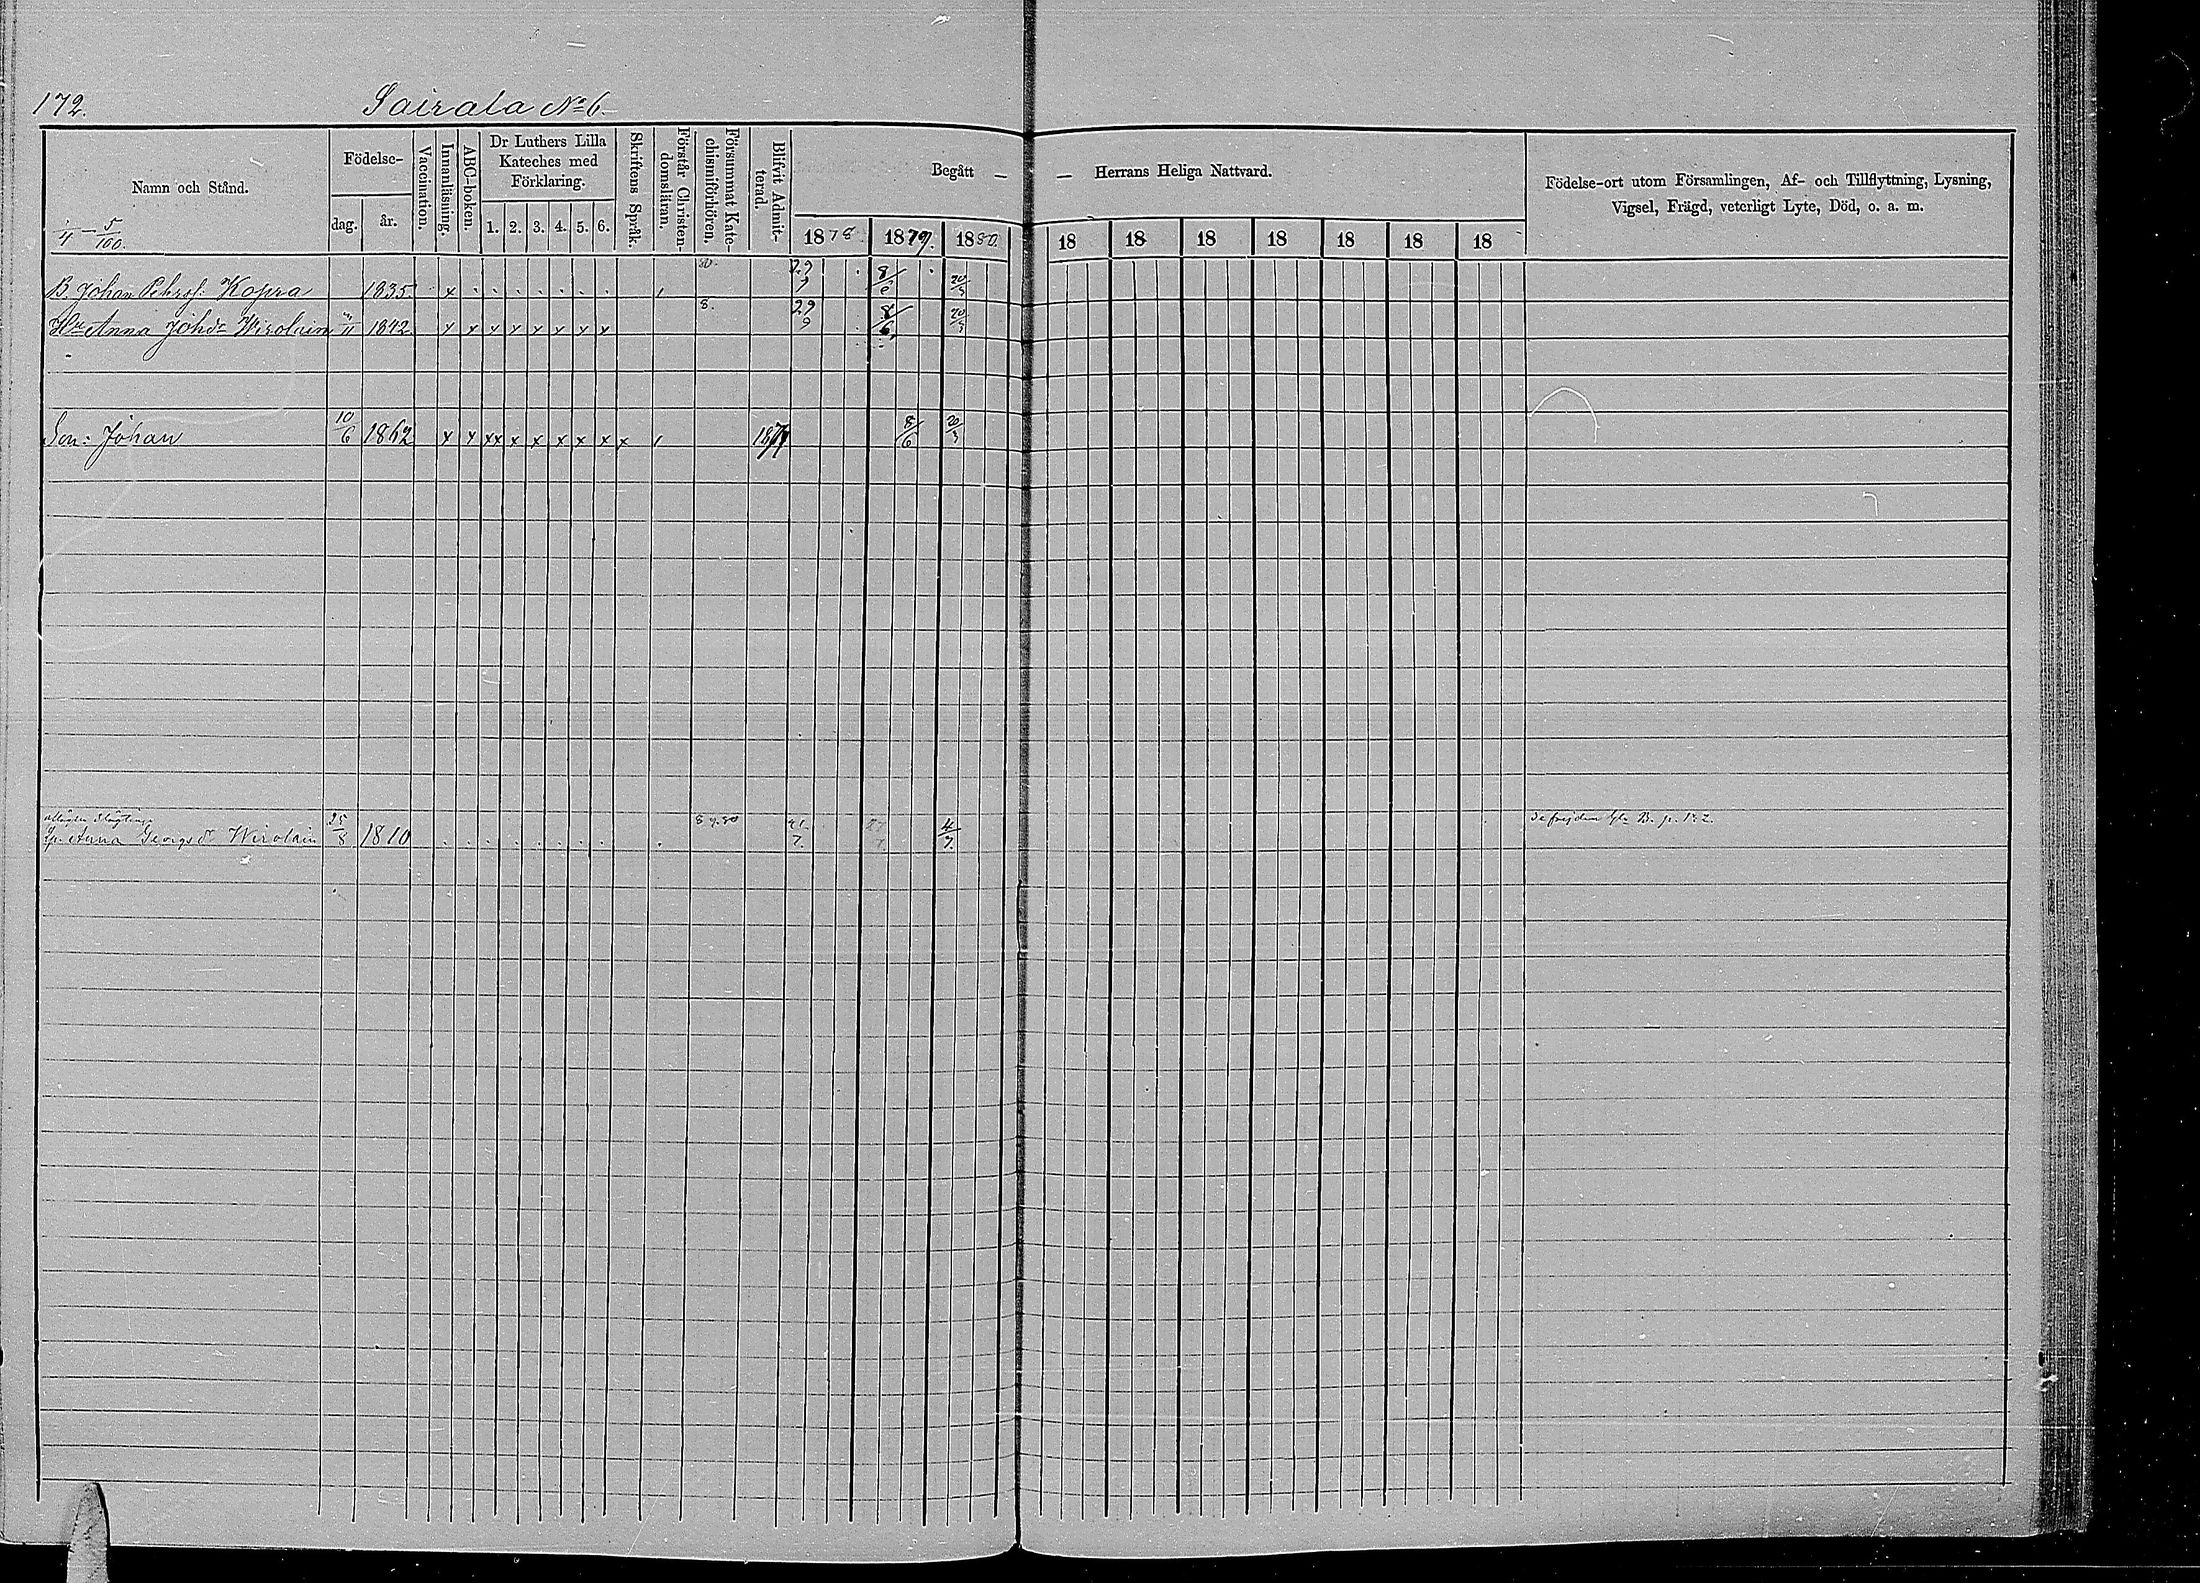 172. Sairala No 6.
Namn och Stånd.
Födelse-
dag.
år.
Vaccination.
Innanläsning.
ABC-boken.
Dr Luthers Lilla
Kateches med
Förklaring.
1. 2. 3. 4. 5. 6.
Skriftens Språk.
Förstår Christen-
domsläran.
Försummat Kate-
chismiförhören.
Blifvit Admit-
terad.
Begått —
— Herrans Heliga Nattvard.
1878. 1879. 1880. 18 18 18 18 18 18 18
Födelse-ort utom Församlingen, Af- och Tillflyttning, Lysning,
Vigsel, Frägd, veterligt Lyte, Död, o. a. m.
5/100.
B. Johan Pehrs: Kopra 1835. x 80. 29/9 8/6 20/3
Hu Anna Johdr Wirolain 1842 x x x x x x x x 8. 29/9 8/6 20/3
Son: Johan 10/6 1862 x x xx x x x x x x 1877 8/6 20/3
Anna Georgsdr Wirolain 25/8 1810 4/7 p. 172.